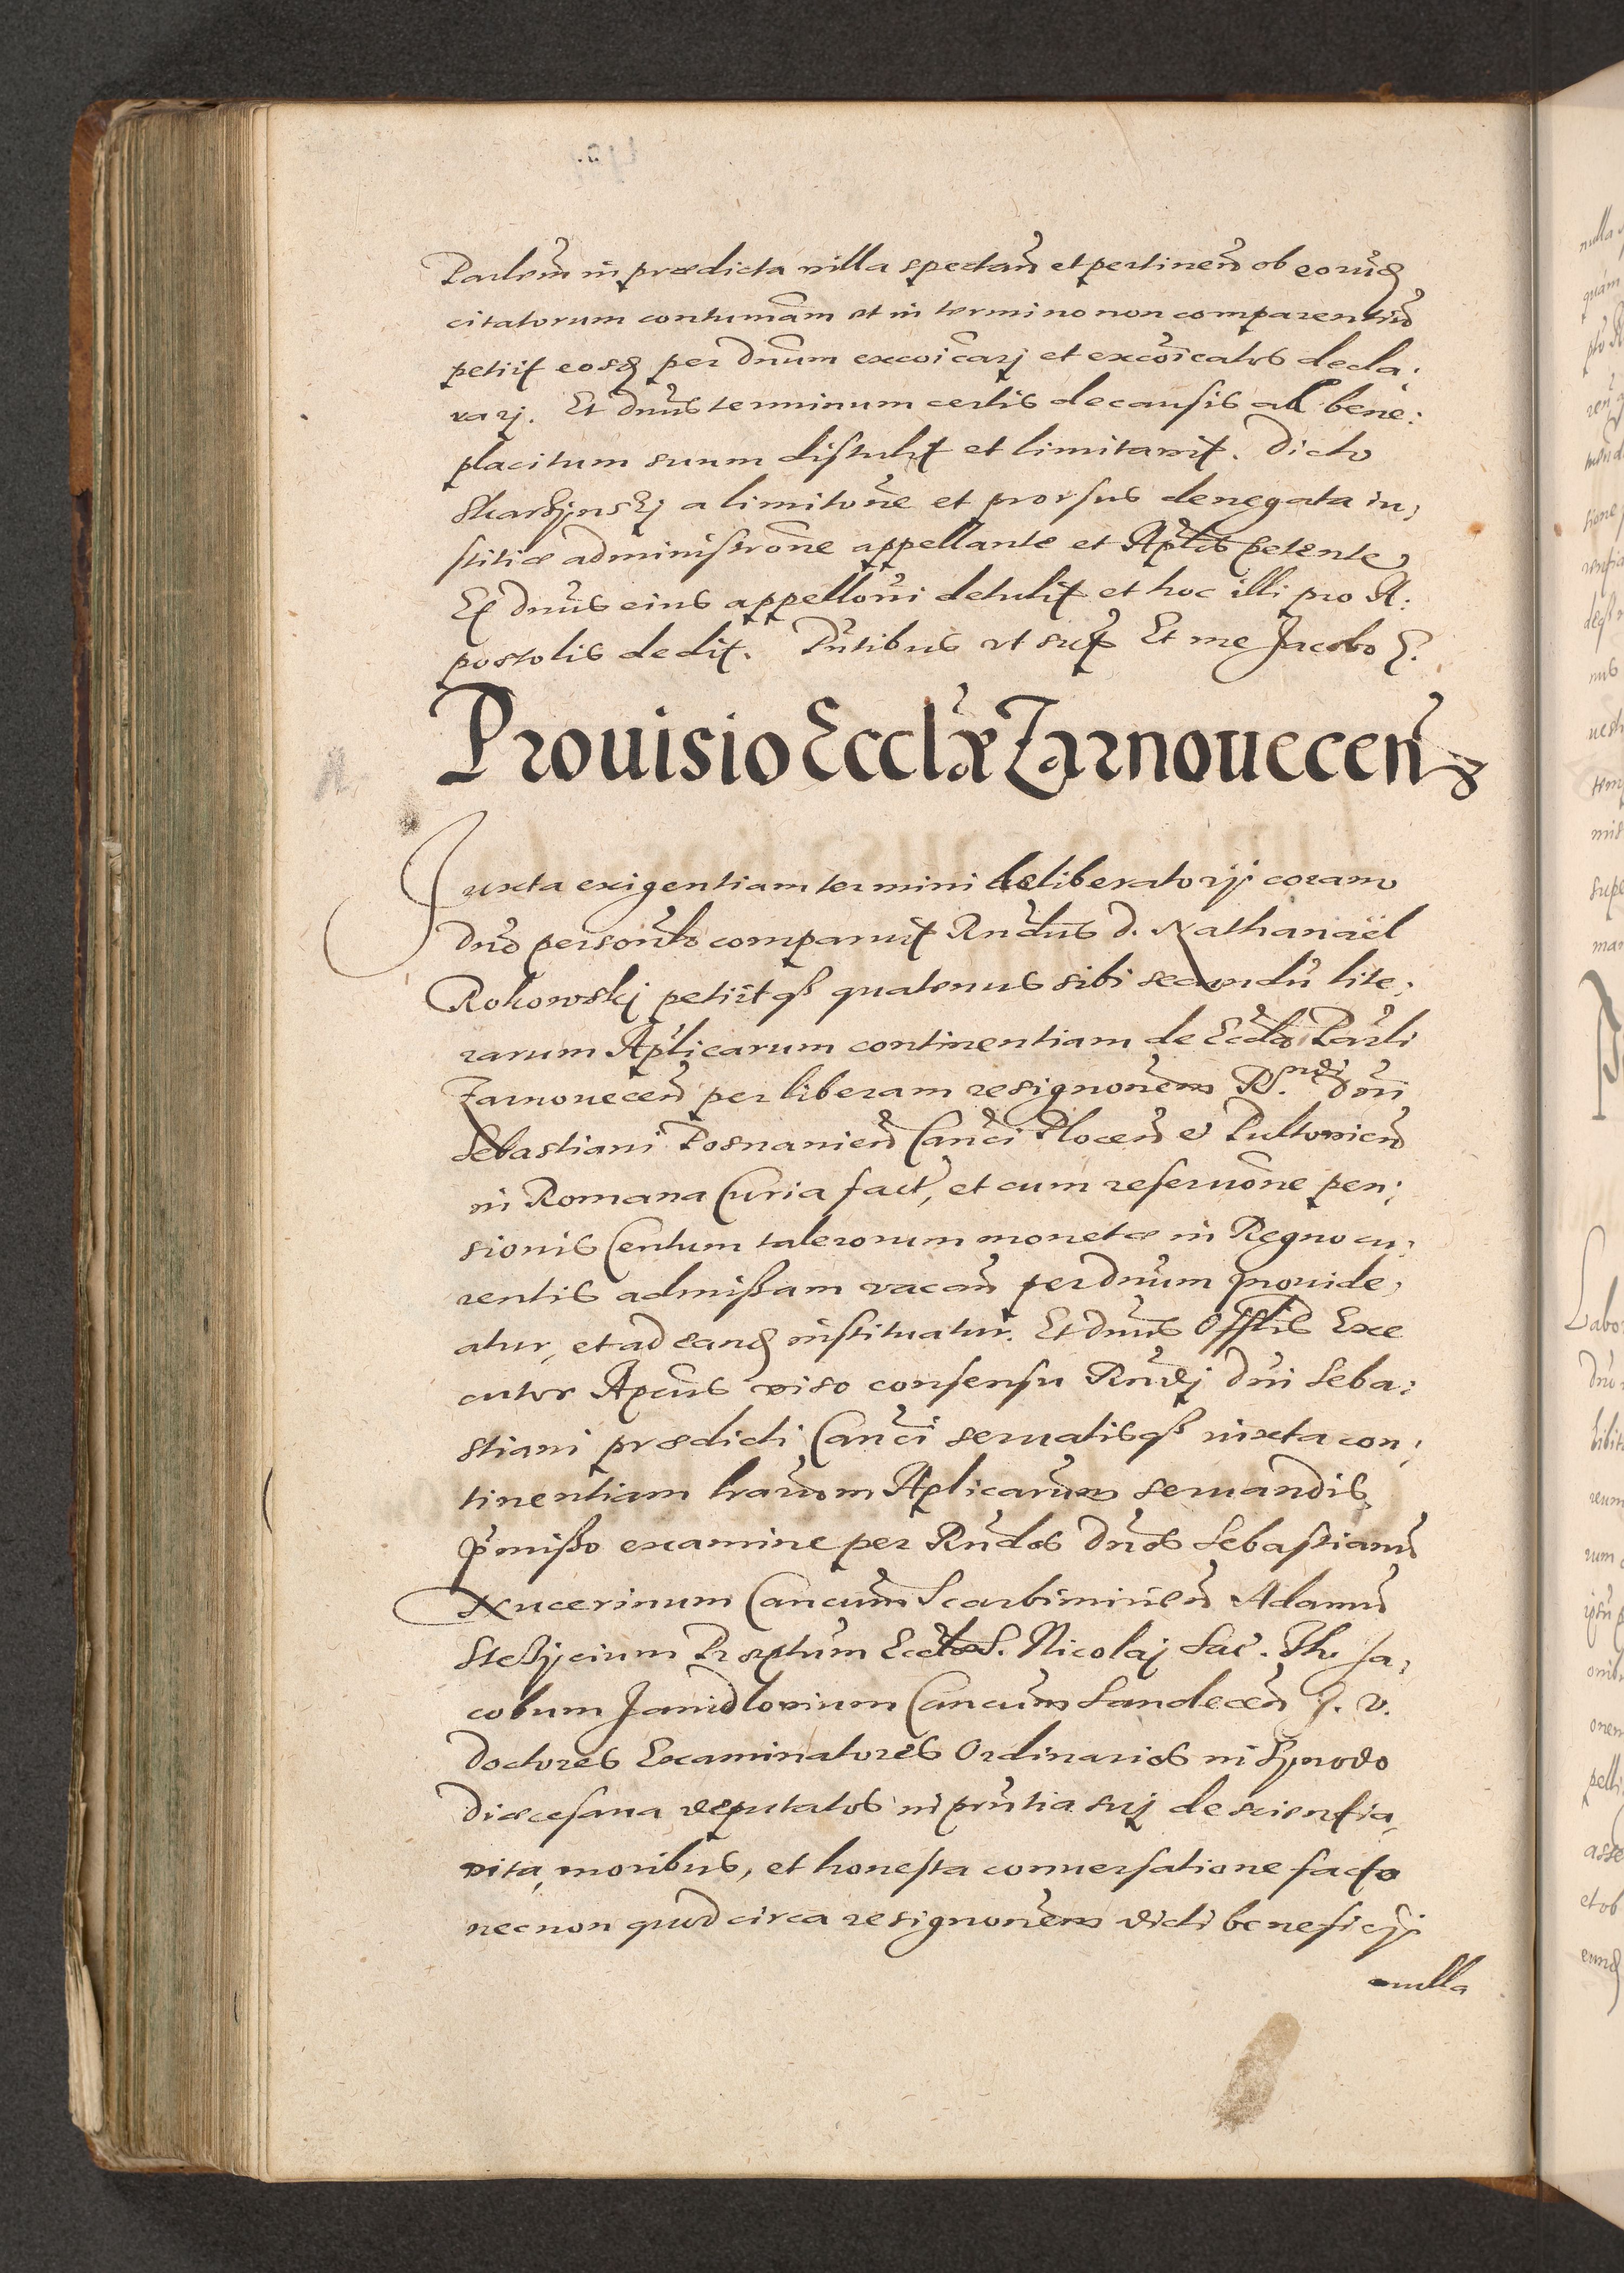 Partem in prædicta villa spectan̄ et pertinen̄ ob eorūd
citatorum contumām et in termino non comparentiū
petiit eosd per dnūm excoīcarj et excoīcatos decla:
rarj. Et dnūs terminum certis de causis ad bene:
placitum suum distulit et limitavit. Dicto
Skarzynskj a limitōne et prorsus denegata iu,
stitiæ administrōne appellante et Aplōs petente,
Et dnūs eius appellōni detulit et hoc illi pro A:
postolis dedit. Pn̄tibus vt sup Et me Jacobo
Prouisio Ecclæ Zarnouecen̄
Juxta exigentiam termini deliberatorij coram
dnō personlr comparuit Rn̄dus D. Nathanaël
Rokowskj petiitqß quatenus sibi secundū lite:
rarum Aplicarum continentiam de Eccla Parli
Zarnouecen̄ per liberam resignonem R.ndi dn̄i
Sebastiani Posnanien̄ Canci Plocen̄ et Pultovien̄
in Romana Curia fact, et cum reseruōne pen:
sionis Centum talerorum monetæ in Regno cu,
rentis admißam vacan̄ per dnūm prouide,
atur, et ad eand instituatur. Et dnūs Offlis Exe
cutor Apcus viso consensu Rn̄dj dn̄i Seba:
stiani prædicti Canci seruatisqß iuxta con,
tinentiam lrarum Aplicarum seruandis
p̄mißo examine per Rn̄dos Dnōs Sebastianū
Nucerinum Cancum Scarbimirien̄ Adamū
Præptum Ecclæ S. Nicolaj Sac. Th. Ja,
cobum Janidlovium Cancum Sandecen̄ J. V.
Doctores Examinatores Ordinarios in Synodo
Diæcesana deputatos in pn̄tia suj de scientia,
vita, moribus, et honesta conuersatione facto
necnon quod circa resignonem dicti beneficij
nulla